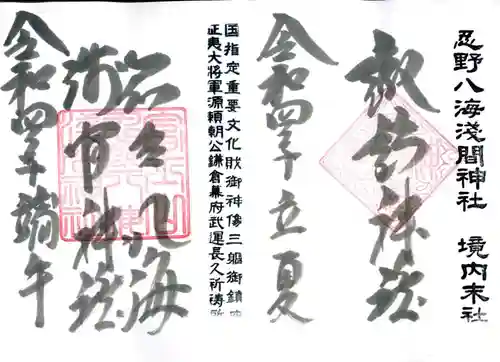 忍野八海淺間神社 境内末社
諏訪神社
令和四年立夏
国指定重要文化財御神像三躯御鎮
正夷大将軍源頼朝公鎌倉幕府武運長久祈祷所
忍野八海
浅間神社
令和四年端午